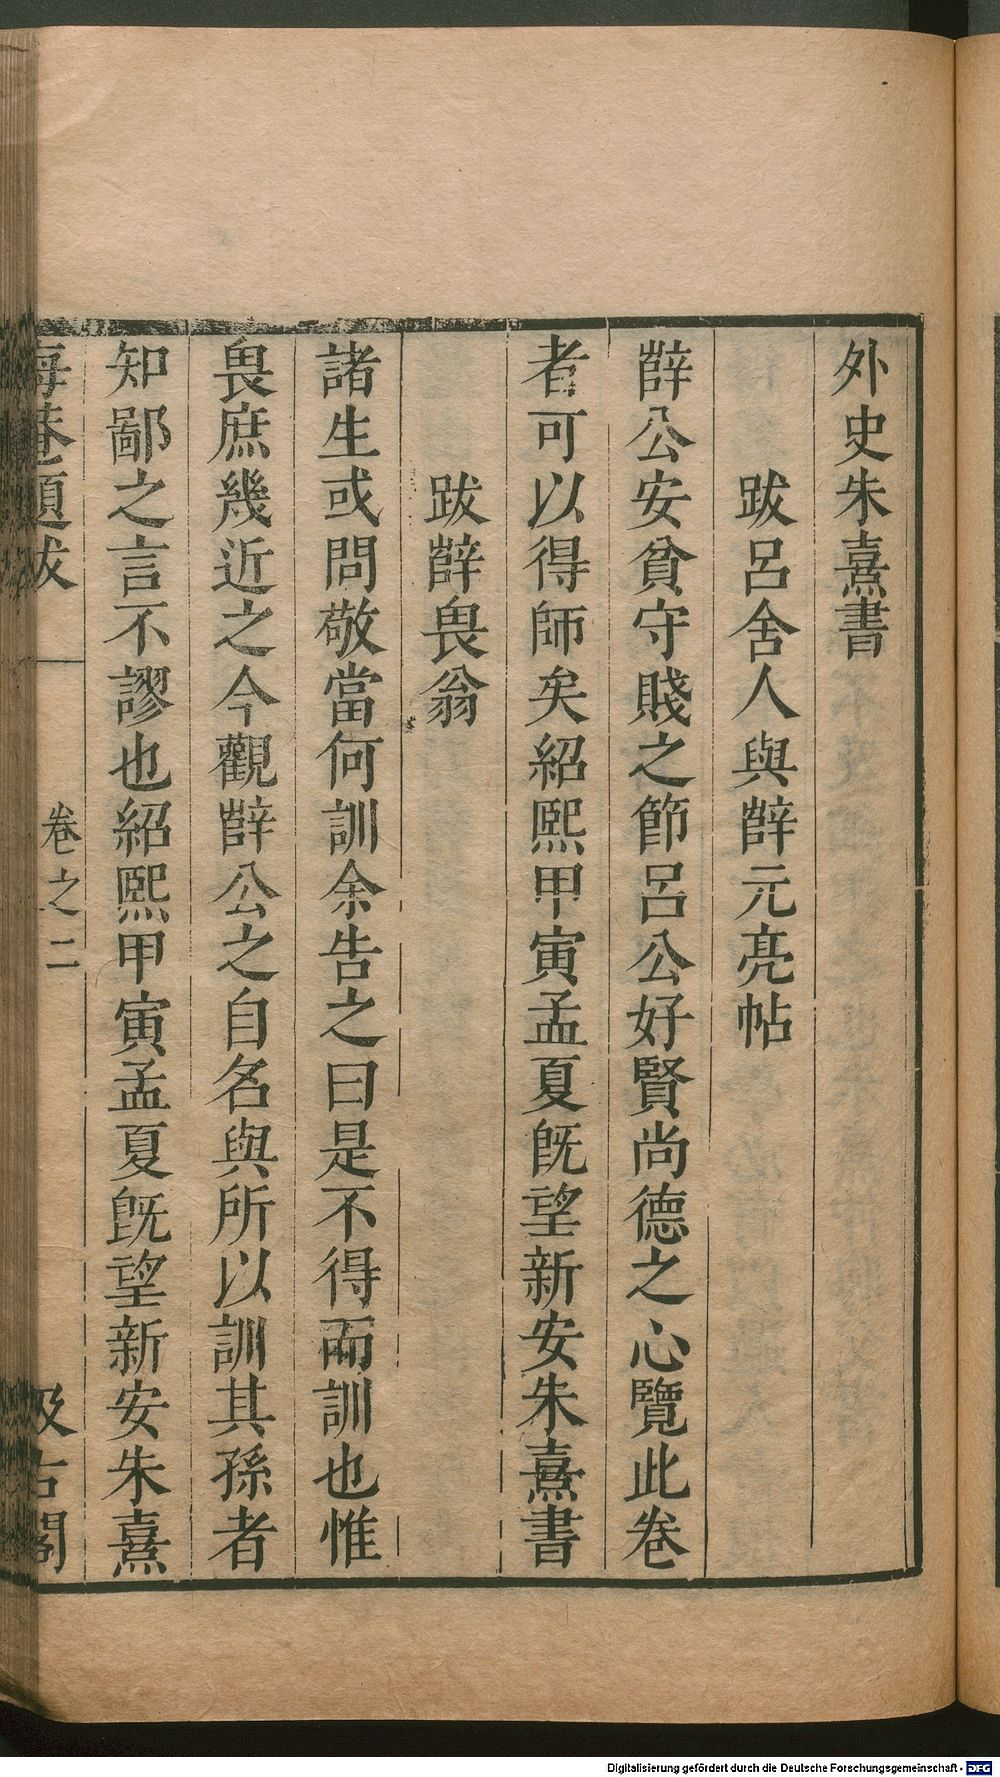 外史朱熹書
跋呂舍人與薛元亮帖
薛公安貧守賤之節呂公好賢尚德之心覽此卷
者可以得師矣紹熙甲寅孟夏旣望新安朱熹書
跋薛畏翁
諸生或問敬當何訓余告之曰是不得而訓也惟
畏庶幾近之今觀薛公之自名與所以訓其孫者
知鄙之言不謬也紹熙甲寅孟夏旣望新安朱熹
海菴題跋 卷之二 汲古閣
Digitalisierung gefördert durch die Deutsche Forschungsgemeinschaft - DFG